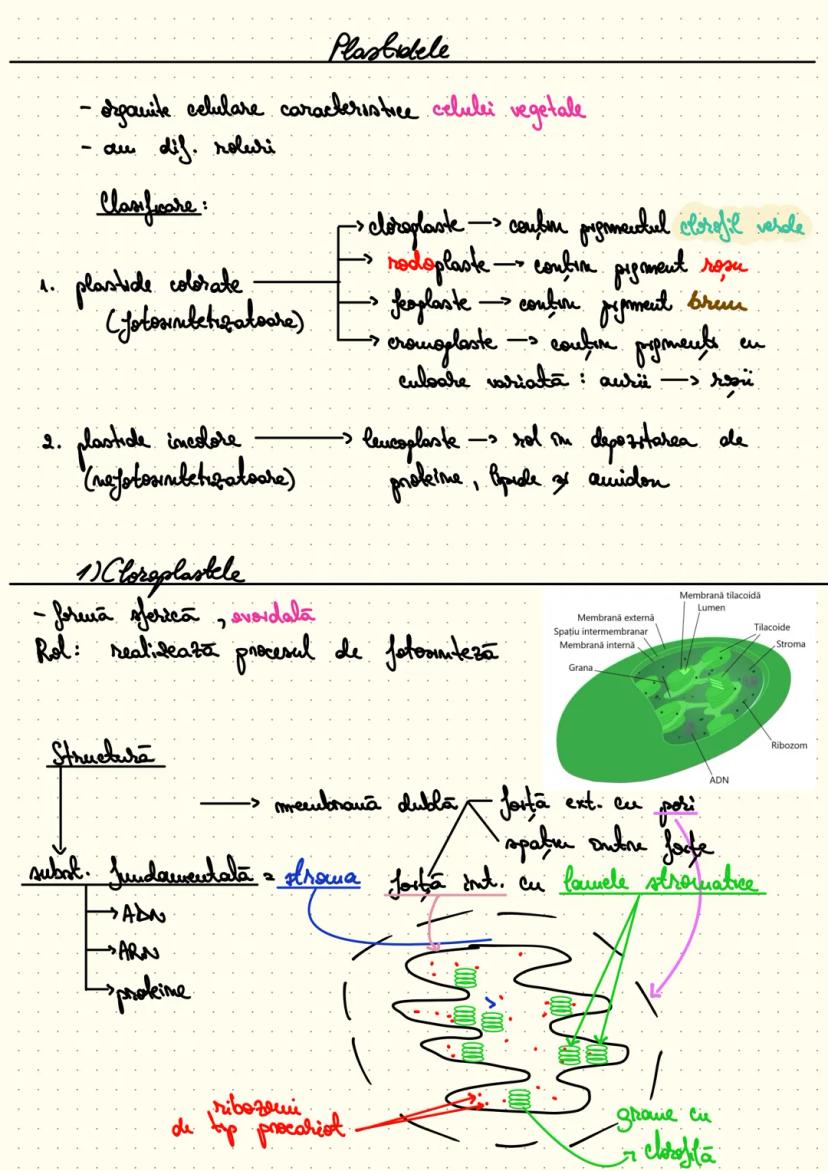 Plastidele
- organite celulare caracteristice celulei vegetale
- au dif. roluri
Clasificare:
1. plastide colorate
(fotosintetizatoare)
→ cloroplaste → conțin pigmentul clorofil verde
→ rodoplaste → conțin pigment roșu
→ feoplaste → conțin pigment brun
→ cromoplaste → conțin pigmenți cu
culoare variată : aurii → roșii
2. plastide incolore → leucoplaste → rol în depozitarea de
(nefotosintetizatoare) proteine, lipide și amidon
1) Cloroplastele
- formă sferică, ovoidală
Rol: realizează procesul de fotosinteză
Membrană tilacoidă
Lumen
Membrană externă
Tilacoide
Spațiu intermembranar
Membrană internă
Stroma
Grana
Ribozom
ADN
Structură
→ membrană dublă
foiță ext. cu pori
spațiu între foițe
foiță int. cu lamele stromatice
subst. fundamentală = stroma
→ ADN
→ ARN
→ proteine
ribozomi
de tip procariot
grane cu
clorofilă